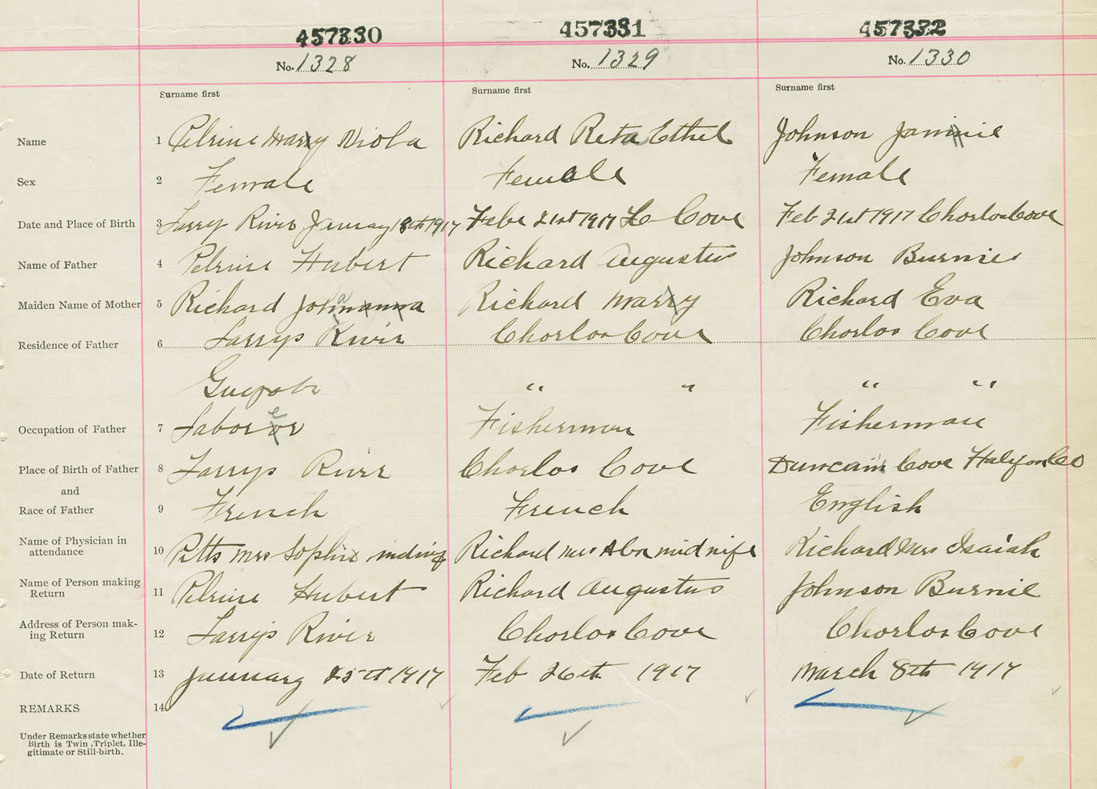 457330 457331 457332
No. 1328 No. 1329 No. 1330
Surname first Surname first Surname first
Name 1 Pelrine Mary Viola Richard Reta Ethel Johnson Jannie
Sex 2 Female Female Female
Date and Place of Birth 3 Larrys River January 1917 Febr 21st 1917 L Cove Feb 21st 1917 Chorlos Cove
Name of Father 4 Pelrine Hubert Richard Augustus Johnson Burnie
Maiden Name of Mother 5 Richard Richard Mary Richard Eva
Residence of Father 6 Larrys River Chorlos Cove Chorlos Cove
Guysobr " " " "
Occupation of Father 7 Laborer Fisherman Fisherman
Place of Birth of Father 8 Larrys River Chorlos Cove Duncain Cove Co
and
Race of Father 9 French French English
Name of Physician in
attendance 10 Pitts Mrs Sophie Richard Mrs midwife Richard Mrs Isaiah
Name of Person making
Return 11 Pelrine Hubert Richard Augustus Johnson Burnie
Address of Person mak-
ing Return 12 Larry's River Chorlos Cove Chorlos Cove
Date of Return 13 January 25th 1917 Feb 26th 1917 March 8th 1917
REMARKS 14
Under Remarks state whether
Birth is Twin, Triplet, Ille-
gitimate or Still-birth.